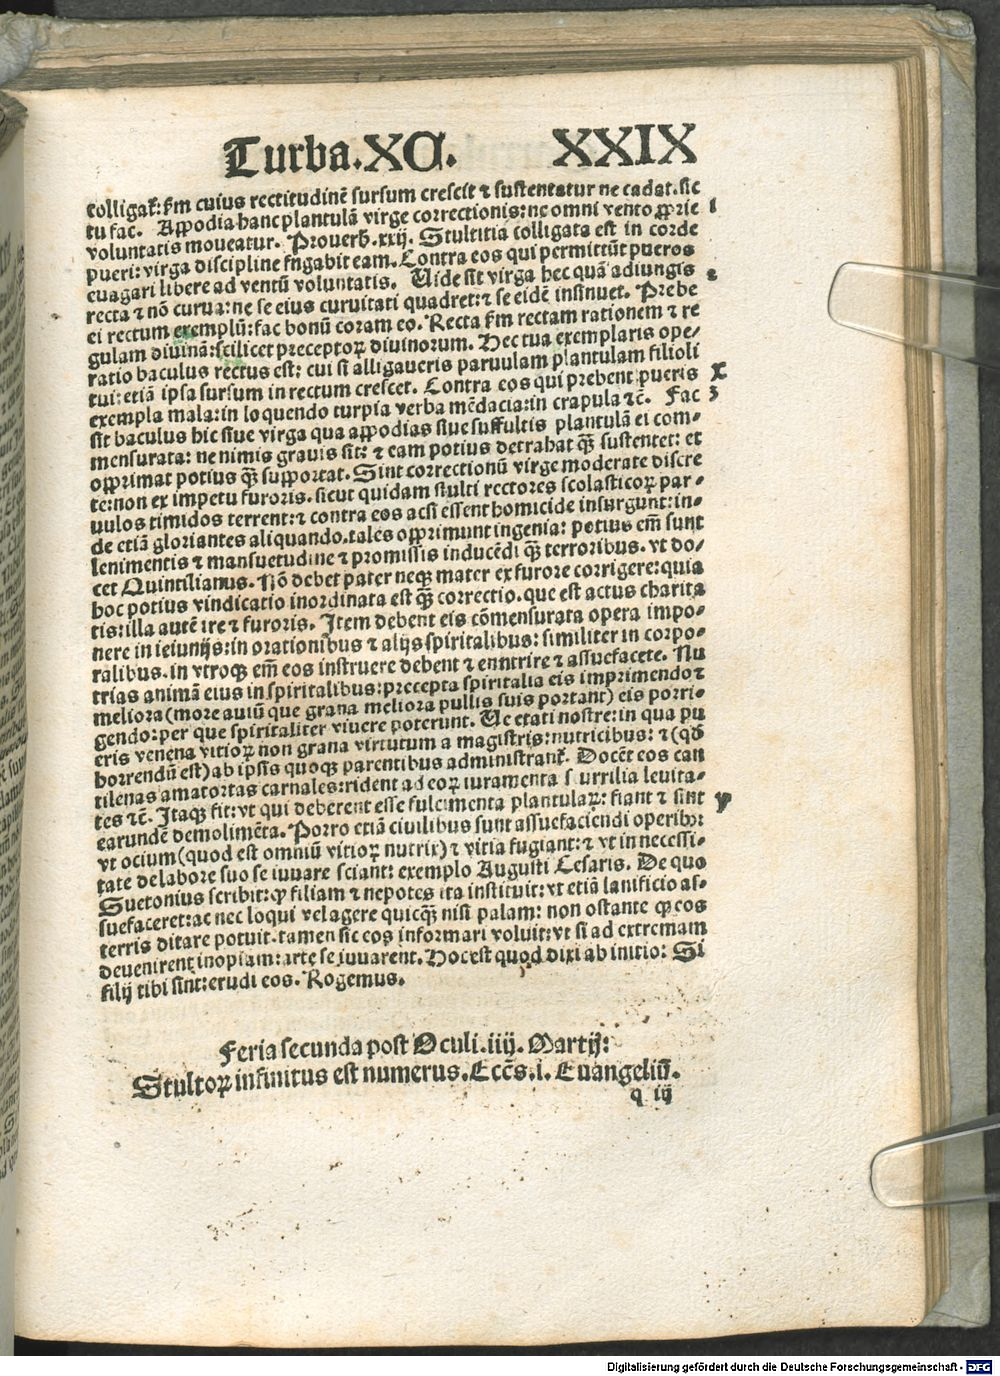 Turba.XC. XXIX
colligaꝉ: ẜm cuius rectitudinẽ sursum crescit ⁊ sustentatur ne cadat. sic
tu fac. Appodia hanc plantulã virge correctionis: ne omni vento ꝓprie
voluntatis moueatur. Prouerb. xxij. Stultitia colligata est in corde
pueri: virga discipline fugabit eam. Contra eos qui permittũt pueros
euagari libere ad ventũ voluntatis. Vide sit virga hec quã adiungis
recta ⁊ nõ curua: ne se eius curuitati quadret: ⁊ se eidẽ insinuet. Prebe
ei rectum exemplũ: fac bonũ coram eo. Recta ẜm rectam rationem ⁊ re
gulam diuinã: scilicet preceptoꝝ diuinorum. Hec tua exemplaris ope-
ratio baculus rectus est: cui si alligaueris paruulam plantulam filioli
tui: etiã ipsa sursum in rectum crescet. Contra eos qui prebent pueris
exempla mala: in loquendo turpia verba mẽdacia: in crapula ⁊c̃. Fac
sit baculus hic siue virga qua appodias siue suffultis plantulã ei com-
mensurata: ne nimis grauis sit: ⁊ eam potius detrahat q̃ꝫ sustentet: et
opprimat potius q̃ꝫ supportat. Sint correctionũ virge moderate discre
te: non ex impetu furoris. sicut quidam stulti rectores scolasticoꝝ par-
uulos timidos terrent: ⁊ contra eos acsi essent homicide insurgunt: in-
de etiã gloriantes aliquando. tales opprimunt ingenia: potius em̃ sunt
lenimentis ⁊ mansuetudine ⁊ promissis inducẽdi q̃ꝫ terroribus. vt do-
cet Quintilianus. Nõ debet pater neqꝫ mater ex furore corrigere: quia
hoc potius vindicatio inordinata est q̃ꝫ correctio. que est actus charita
tis: illa autẽ ire ⁊ furoris. Item debent eis cõmensurata opera impo-
nere in ieiunijs: in orationibus ⁊ alijs spiritalibus: similiter in corpo-
ralibus. in vtroqꝫ em̃ eos instruere debent ⁊ enutrire ⁊ assuefacete. Nu
trias animã eius in spiritalibus: precepta spiritalia eis imprimendo ⁊
meliora (more auiũ que grana meliora pullis suis portant) eis porri-
gendo: per que spiritaliter viuere poterunt. Ve etati nostre: in qua pu
eris venena vitioꝝ non grana virtutum a magistris: nutricibus: ⁊ (qđ
horrendũ est) ab ipsis quoqꝫ parentibus administranꝉ. Docẽt eos can
tilenas amatorias carnales: rident ad eoꝝ iuramenta scurrilia leuita-
tes ⁊c̃. Itaqꝫ fit: vt qui deberent esse fulcimenta plantulaꝝ: fiant ⁊ sint
earundẽ demolimẽta. Porro etiã ciuilibus sunt assuefaciendi operibꝰ:
vt ocium (quod est omniũ vitioꝝ nutrix) ⁊ vitia fugiant: ⁊ vt in necessi-
tate de labore suo se iuuare sciant: exemplo Augusti Cesaris. De quo
Suetonius scribit: ꝙ filiam ⁊ nepotes ita instituit: vt etiã lanificio as-
suefaceret: ac nec loqui vel agere quicq̃ꝫ nisi palam: non ostante ꝙ eos
terris ditare potuit. tamen sic eos informari voluit: vt si ad extremam
deuenirent inopiam: arte se iuuarent. Hoc est quod dixi ab initio: Si
filij tibi sint: erudi eos. Rogemus.
Feria secunda post Oculi. iiij. Martij:
Stultoꝝ infinitus est numerus. Ecc̃s. i. Euangeliũ.
q iij
Digitalisierung gefördert durch die Deutsche Forschungsgemeinschaft - DFG